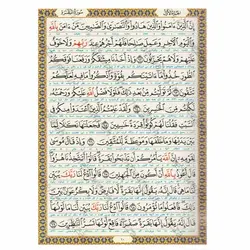 سُورَةُ البَقَرَةِ الجُزْءُ الأَوَّلُ
إِنَّ الَّذِينَ ءَامَنُوا وَالَّذِينَ هَادُوا وَالنَّصَارَىٰ وَالصَّابِئِينَ مَنْ ءَامَنَ بِاللَّهِ
وَالْيَوْمِ الْآخِرِ وَعَمِلَ صَالِحًا فَلَهُمْ أَجْرُهُمْ عِندَ رَبِّهِمْ وَلَا خَوْفٌ
عَلَيْهِمْ وَلَا هُمْ يَحْزَنُونَ ٦٢ وَإِذْ أَخَذْنَا مِيثَاقَكُمْ وَرَفَعْنَا فَوْقَكُمُ
الطُّورَ خُذُوا مَا ءَاتَيْنَاكُم بِقُوَّةٍ وَاذْكُرُوا مَا فِيهِ لَعَلَّكُمْ
تَتَّقُونَ ٦٣ ثُمَّ تَوَلَّيْتُم مِّن بَعْدِ ذَٰلِكَ فَلَوْلَا فَضْلُ اللَّهِ عَلَيْكُمْ
وَرَحْمَتُهُ لَكُنتُم مِّنَ الْخَاسِرِينَ ٦٤ وَلَقَدْ عَلِمْتُمُ الَّذِينَ اعْتَدَوْا
مِنكُمْ فِي السَّبْتِ فَقُلْنَا لَهُمْ كُونُوا قِرَدَةً خَاسِئِينَ ٦٥ فَجَعَلْنَاهَا نَكَالًا
لِّمَا بَيْنَ يَدَيْهَا وَمَا خَلْفَهَا وَمَوْعِظَةً لِّلْمُتَّقِينَ ٦٦ وَإِذْ قَالَ مُوسَىٰ
لِقَوْمِهِ إِنَّ اللَّهَ يَأْمُرُكُمْ أَن تَذْبَحُوا بَقَرَةً قَالُوا أَتَتَّخِذُنَا هُزُوًا
قَالَ أَعُوذُ بِاللَّهِ أَنْ أَكُونَ مِنَ الْجَاهِلِينَ ٦٧ قَالُوا ادْعُ لَنَا رَبَّكَ يُبَيِّن
لَّنَا مَا هِيَ قَالَ إِنَّهُ يَقُولُ إِنَّهَا بَقَرَةٌ لَّا فَارِضٌ وَلَا بِكْرٌ عَوَانٌ
بَيْنَ ذَٰلِكَ فَافْعَلُوا مَا تُؤْمَرُونَ ٦٨ قَالُوا ادْعُ لَنَا رَبَّكَ يُبَيِّن لَّنَا مَا لَوْنُهَا
قَالَ إِنَّهُ يَقُولُ إِنَّهَا بَقَرَةٌ صَفْرَاءُ فَاقِعٌ لَّوْنُهَا تَسُرُّ النَّاظِرِينَ ٦٩
١٠